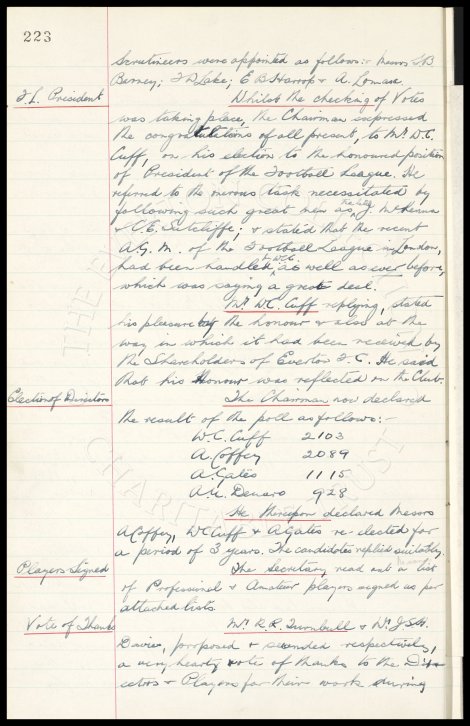 223
Scrutineers were appointed as follows:- Messrs
Berney; Lake; E. B. Harrop & A. Lomax.
F.L. President
Whilst the checking of Votes
was taking place, the Chairman expressed
the congratulations of all present, to Mr. W.C.
Cuff, on his election to the honoured position
of President of the Football League. He
referred to the task necessitated by
the late
following such great men as J. McKenna
& C.E. Sutcliffe; & stated that the recent
A.G.M. of the Football League in London,
by WCC
had been handled, as well as ever before,
which was saying a great deal.
Mr. W.C. Cuff replying, stated
his pleasure by the honour & also at the
way in which it had been received by
the Shareholders of Everton F.C. He said
that his Honour was reflected on the Club.
Election of Directors
The Chairman now declared
the result of the poll as follows:-
W.C. Cuff 2103
A. Coffey 2089
A. Gates 1115
Denaro 928
He thereupon declared Messrs
A Coffey, W C Cuff & A Gates re-elected for
a period of 3 years. The candidates replied suitably.
Players Signed
The Secretary read out a list
of Professional & Amateur players signed as per
attached lists
Vote of Thanks
Mr. R.R. Turnbull & Dr. J.S.M.
Davies, porposed & seconded respectively,
a very hearty vote of thanks to the Dir-
ectors & Players for their work during